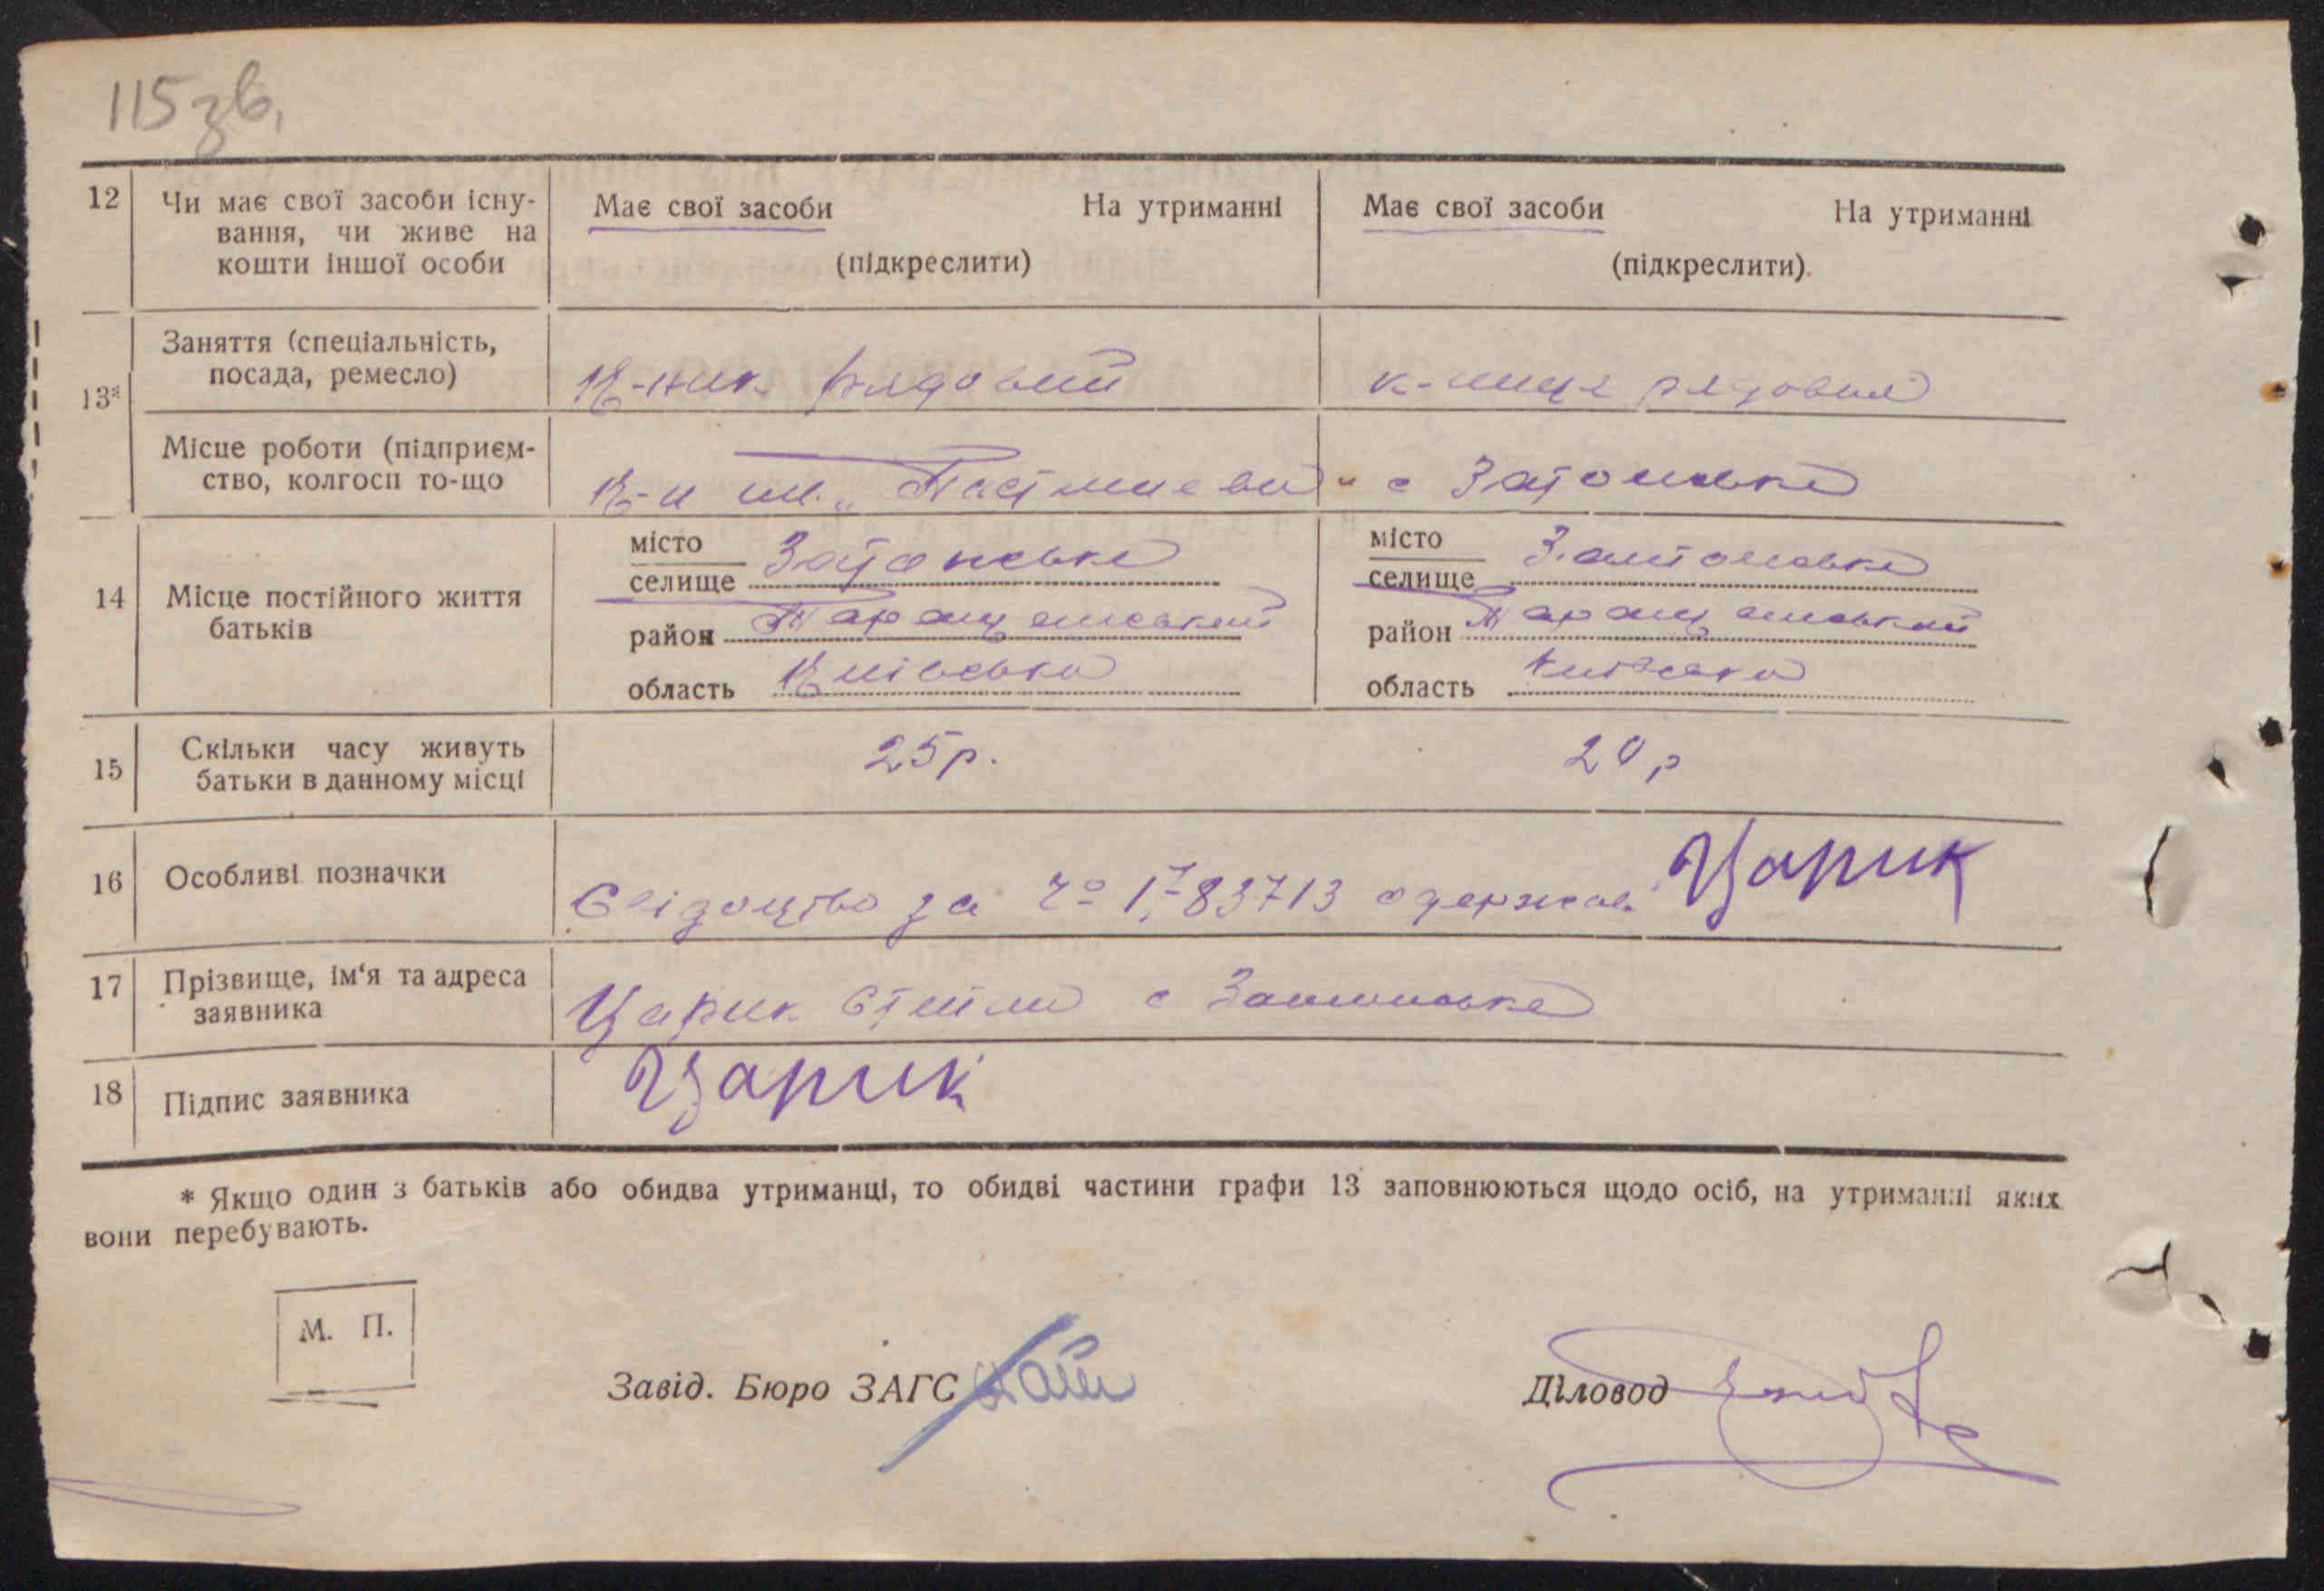 115 зв.
12 Чи має свої засоби існу-
вання, чи живе на
кошти іншої особи
Має свої засоби На утриманні
(підкреслити)
Має свої засоби На утриманні
(підкреслити).
13* Заняття (спеціальність,
посада, ремесло)
К-ник рядовий
к-ниця рядова
Місце роботи (підприєм-
ство, колгосп то-що
К-п ім. „ " с Затонське
14 Місце постійного життя
батьків
місто
селище Затонське
район Таращанський
область Київська
місто
селище Затонське
район Таращанський
область Київська
15 Скільки часу живуть
батьки в данному місці
25 р.
20 р
16 Особливі позначки
Свідоцтво за 83713 одержав Царик
17 Прізвище, ім‘я та адреса
заявника
Царик с Затонське
18 Підпис заявника
Царик
* Якщо один з батьків або обидва утриманці, то обидві частини графи 13 заповнюються щодо осіб, на утриманні яких
вони перебувають.
М. П.
Завід. Бюро ЗАГС
Діловод